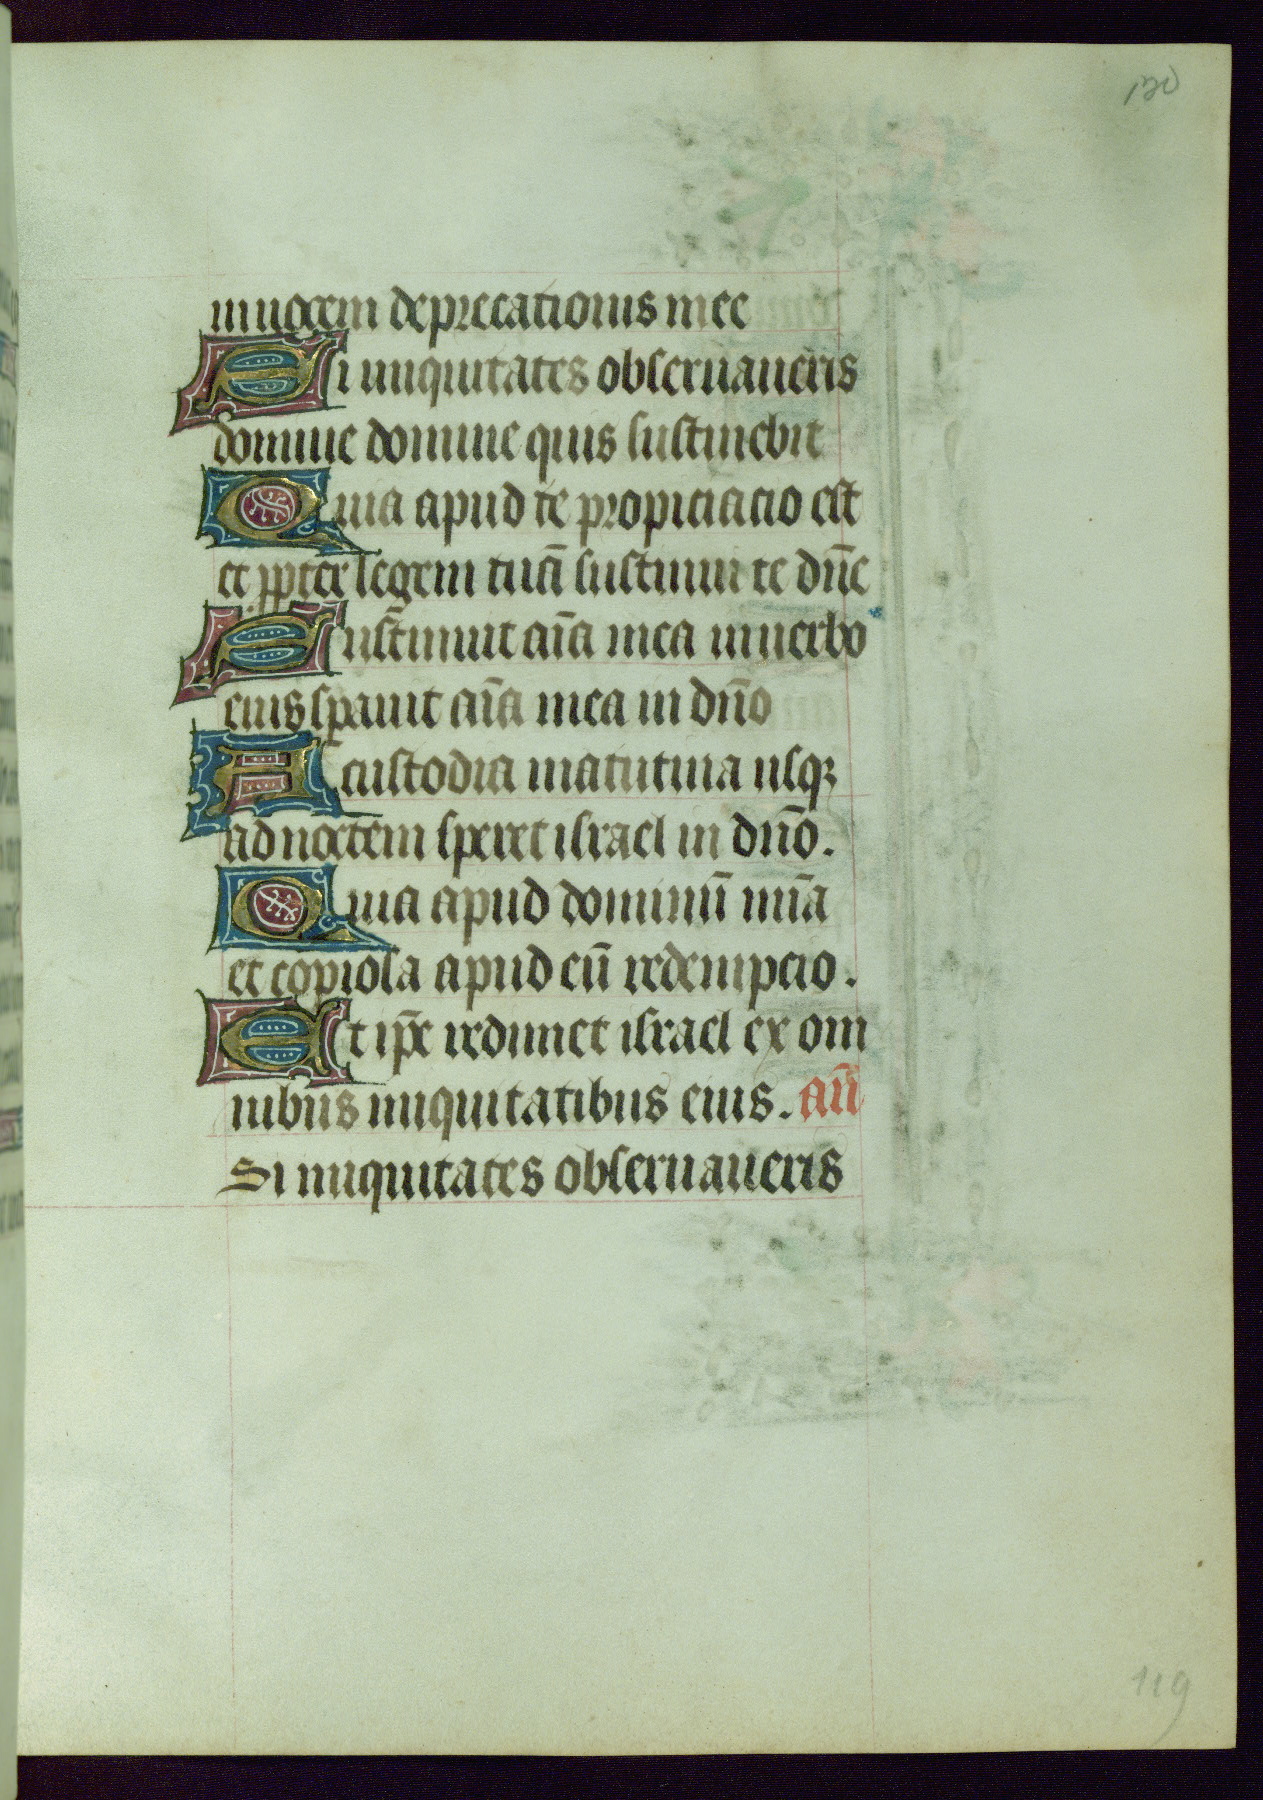 130
in uocem deprecationis mee
Si iniquitates obseruaueris
domine domine quis sustinebit
Quia apud te propiciacio est
et ꝓpter legem tuā sustinui te dn̄e
Sustinuit aīa mea in uerbo
eius sꝑauit aīa mea in dn̄o
A custodia matutina usqꝫ
ad noctem speret israel in dn̄o.
Quia apud dominū mīa
et copiosa apud eū redempcio.
Et ip̄e redimet israel ex om
nibus iniquitatibus eius. an̄
Si iniquitates obseruaueris
119